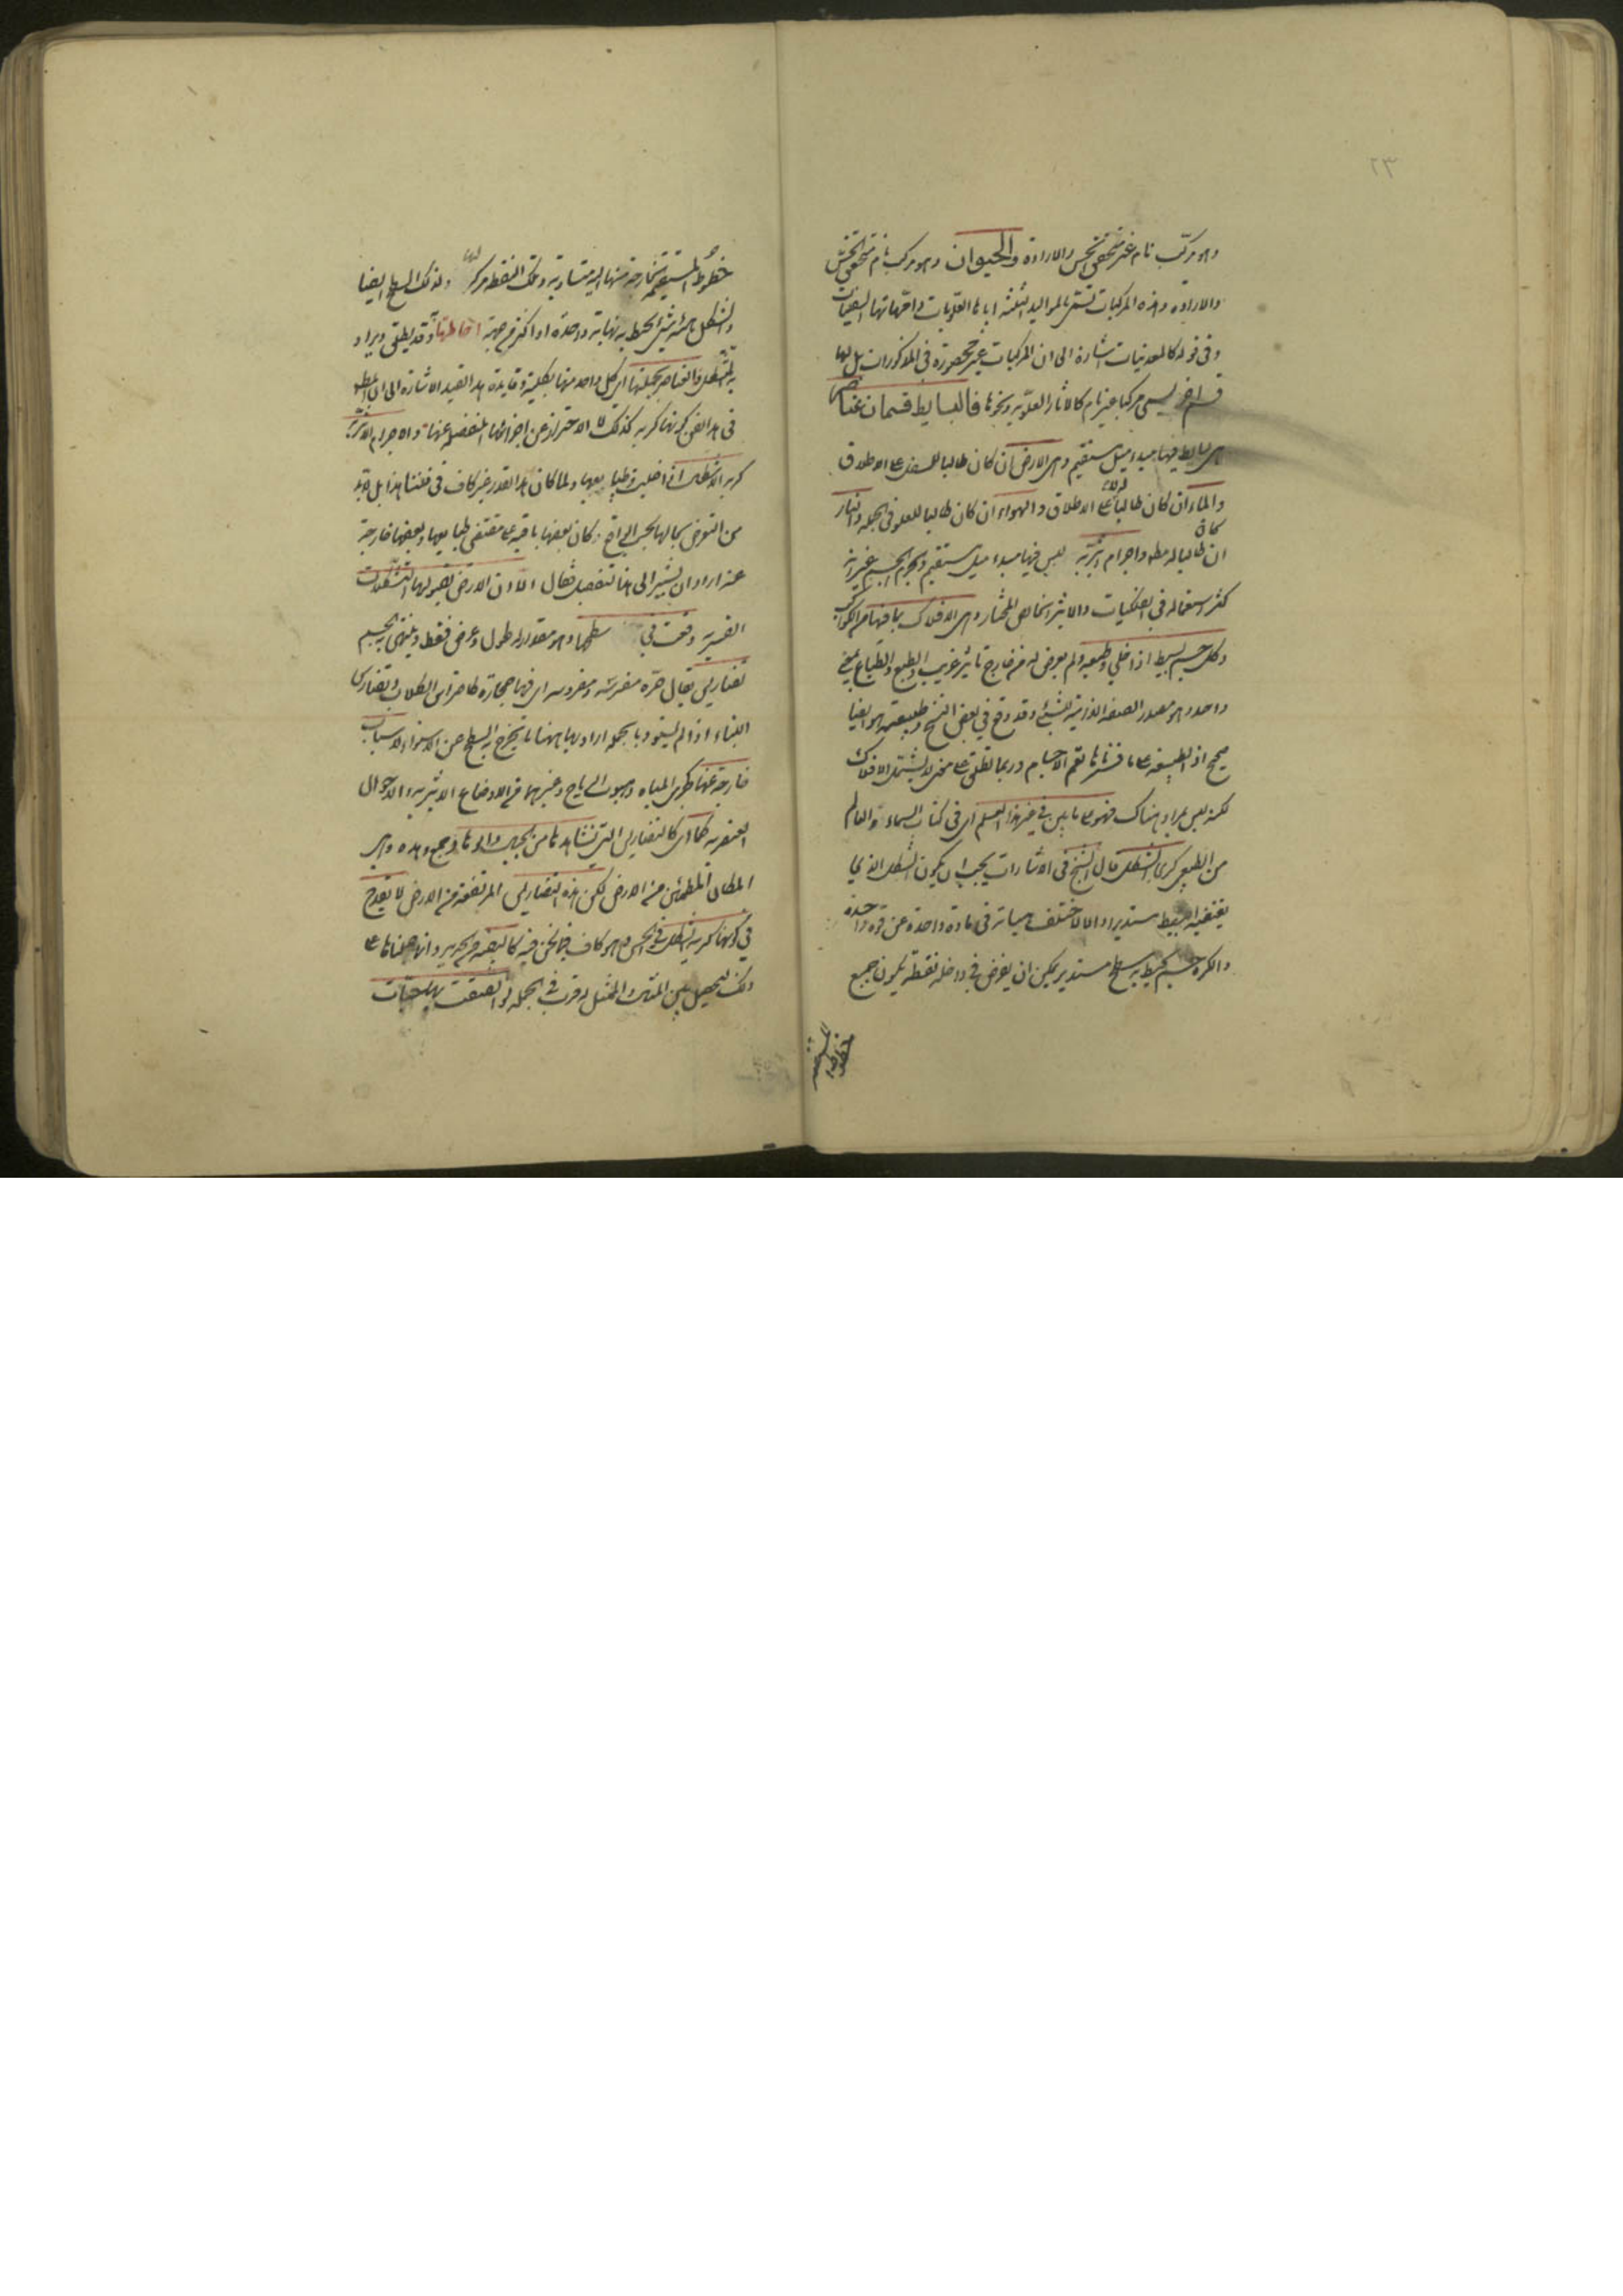 ٢٣
وهو مركب تام غير متحقق الحس والارادة والحيوان وهو مركب تام متحقق الحس
والارادة وهذه المركبات تسمى بالمواليد الثلثة اباءها العلويات وامهاتها السفليات
وفى قوله كالمعدنيات اشارة الى ان المركبات غير محصورة فى المذكورات بل لها
قسم اخر يسمى مركبا غير تام كالاثار العلوية ونحوها فالبسايط قسمان عناصر
هى بسايط فيها مبدء ميل مستقيم وهى الارض ان كان طالبا للسفل على الاطلاق
والماء ان كان طالبا لا على الاطلاق والهواء ان كان طالبا للعلو فى الجملة والنار
ان كان طالبا له مط واجرام اثيرية ليس فيها مبدء ميل مستقيم والجرم الجسم غير انه
كثر استعماله فى الفلكيات والاثير الخالص المختار وهى الافلاك بما فيها من الكواكب
وكل جسم بسيط اذا خلى وطبعه ولم يعرض له من خارج تاثير غريب والطبع والطباع بمعنى
واحد وهو مصدر الصفة الذاتية للشئ وقد وقع فى بعض النسخ وطبيعته وهو ايضا
صحيح اذ الطبيعة على ما فسرناها تعم الاجسام وربما تطلق على معنى لا يشتمل الافلاك
لكنه ليس بمراد هناك فهو على ما بين فى غير هذا العلم اى فى كتاب السماء والعالم
من الطبيعى كرى الشكل قال الشيخ فى الاشارات يجب ان يكون الشكل الذى
يقتضيه البسيط مستديرا والا لاختلف هيئاته فى مادة واحدة عن قوة واحدة
والكرة جسم يحيط به سطح مستدير يمكن ان يفرض فى داخله نقطة يكون جميع
خطوط المستقيمة الخارجة منها اليه متساوية وتلك النقطة مركز لها وذلك السطح ايضا
والشكل هيئة شئ يحيط به نهاية واحدة او اكثر من جهة احاطتها وقد يطلق ويراد
به المتشكل والعناصر بجملتها اى كل واحد منها بكليته وفايدة هذا القيد الاشارة الى ان المط
فى هذا الفن كونها كرية كذلك لا الاحتراز عن اجزائها المنفصلة عنها والاجرام الاثيرية
كرية الاشكال اذا خليت وطبايعها ولما كان هذا القدر غير كاف فى فننا هذا بل لابد
من التعرض بحالها بحسب الواقع وكان بعضها باقية على مقتضى طبايعها وبعضها خارجة
عنه اراد ان يشير الى هذا تفصيل فقال الا ان الارض لقبولها التشكلات
القسرية وقعت فى سطحها وهو مقدار له طول وعرض فقط وينتهى به الجسم
تضاريس يقال حرة مضرسة ومضروسة اى فيها حجارة كاضراس الكلاب وتضارس
البناء اذا لم يستو وبالجملة اراد بها ههنا ما يخرج به السطح عن الاستواء لاسباب
خارجة عنها كجرى المياه وهبوب الرياح وغيرهما من الاوضاع الاثيرية والاحوال
العنصرية كما اى كالتضاريس التى نشاهدها من الجبال والوهاد جمع وهدة وهى
المكان المطمئن من الارض لكن هذه التضاريس المرتفعة من الارض لا يقدح
فى كونها كرية الشكل فى الحس وهو كاف فيما نحن فيه كالبيضة من الحديد وانما مثلنا على
ذلك ليحصل بين المثال والممثل له قرب فى الجملة لو الصقت بها حبات